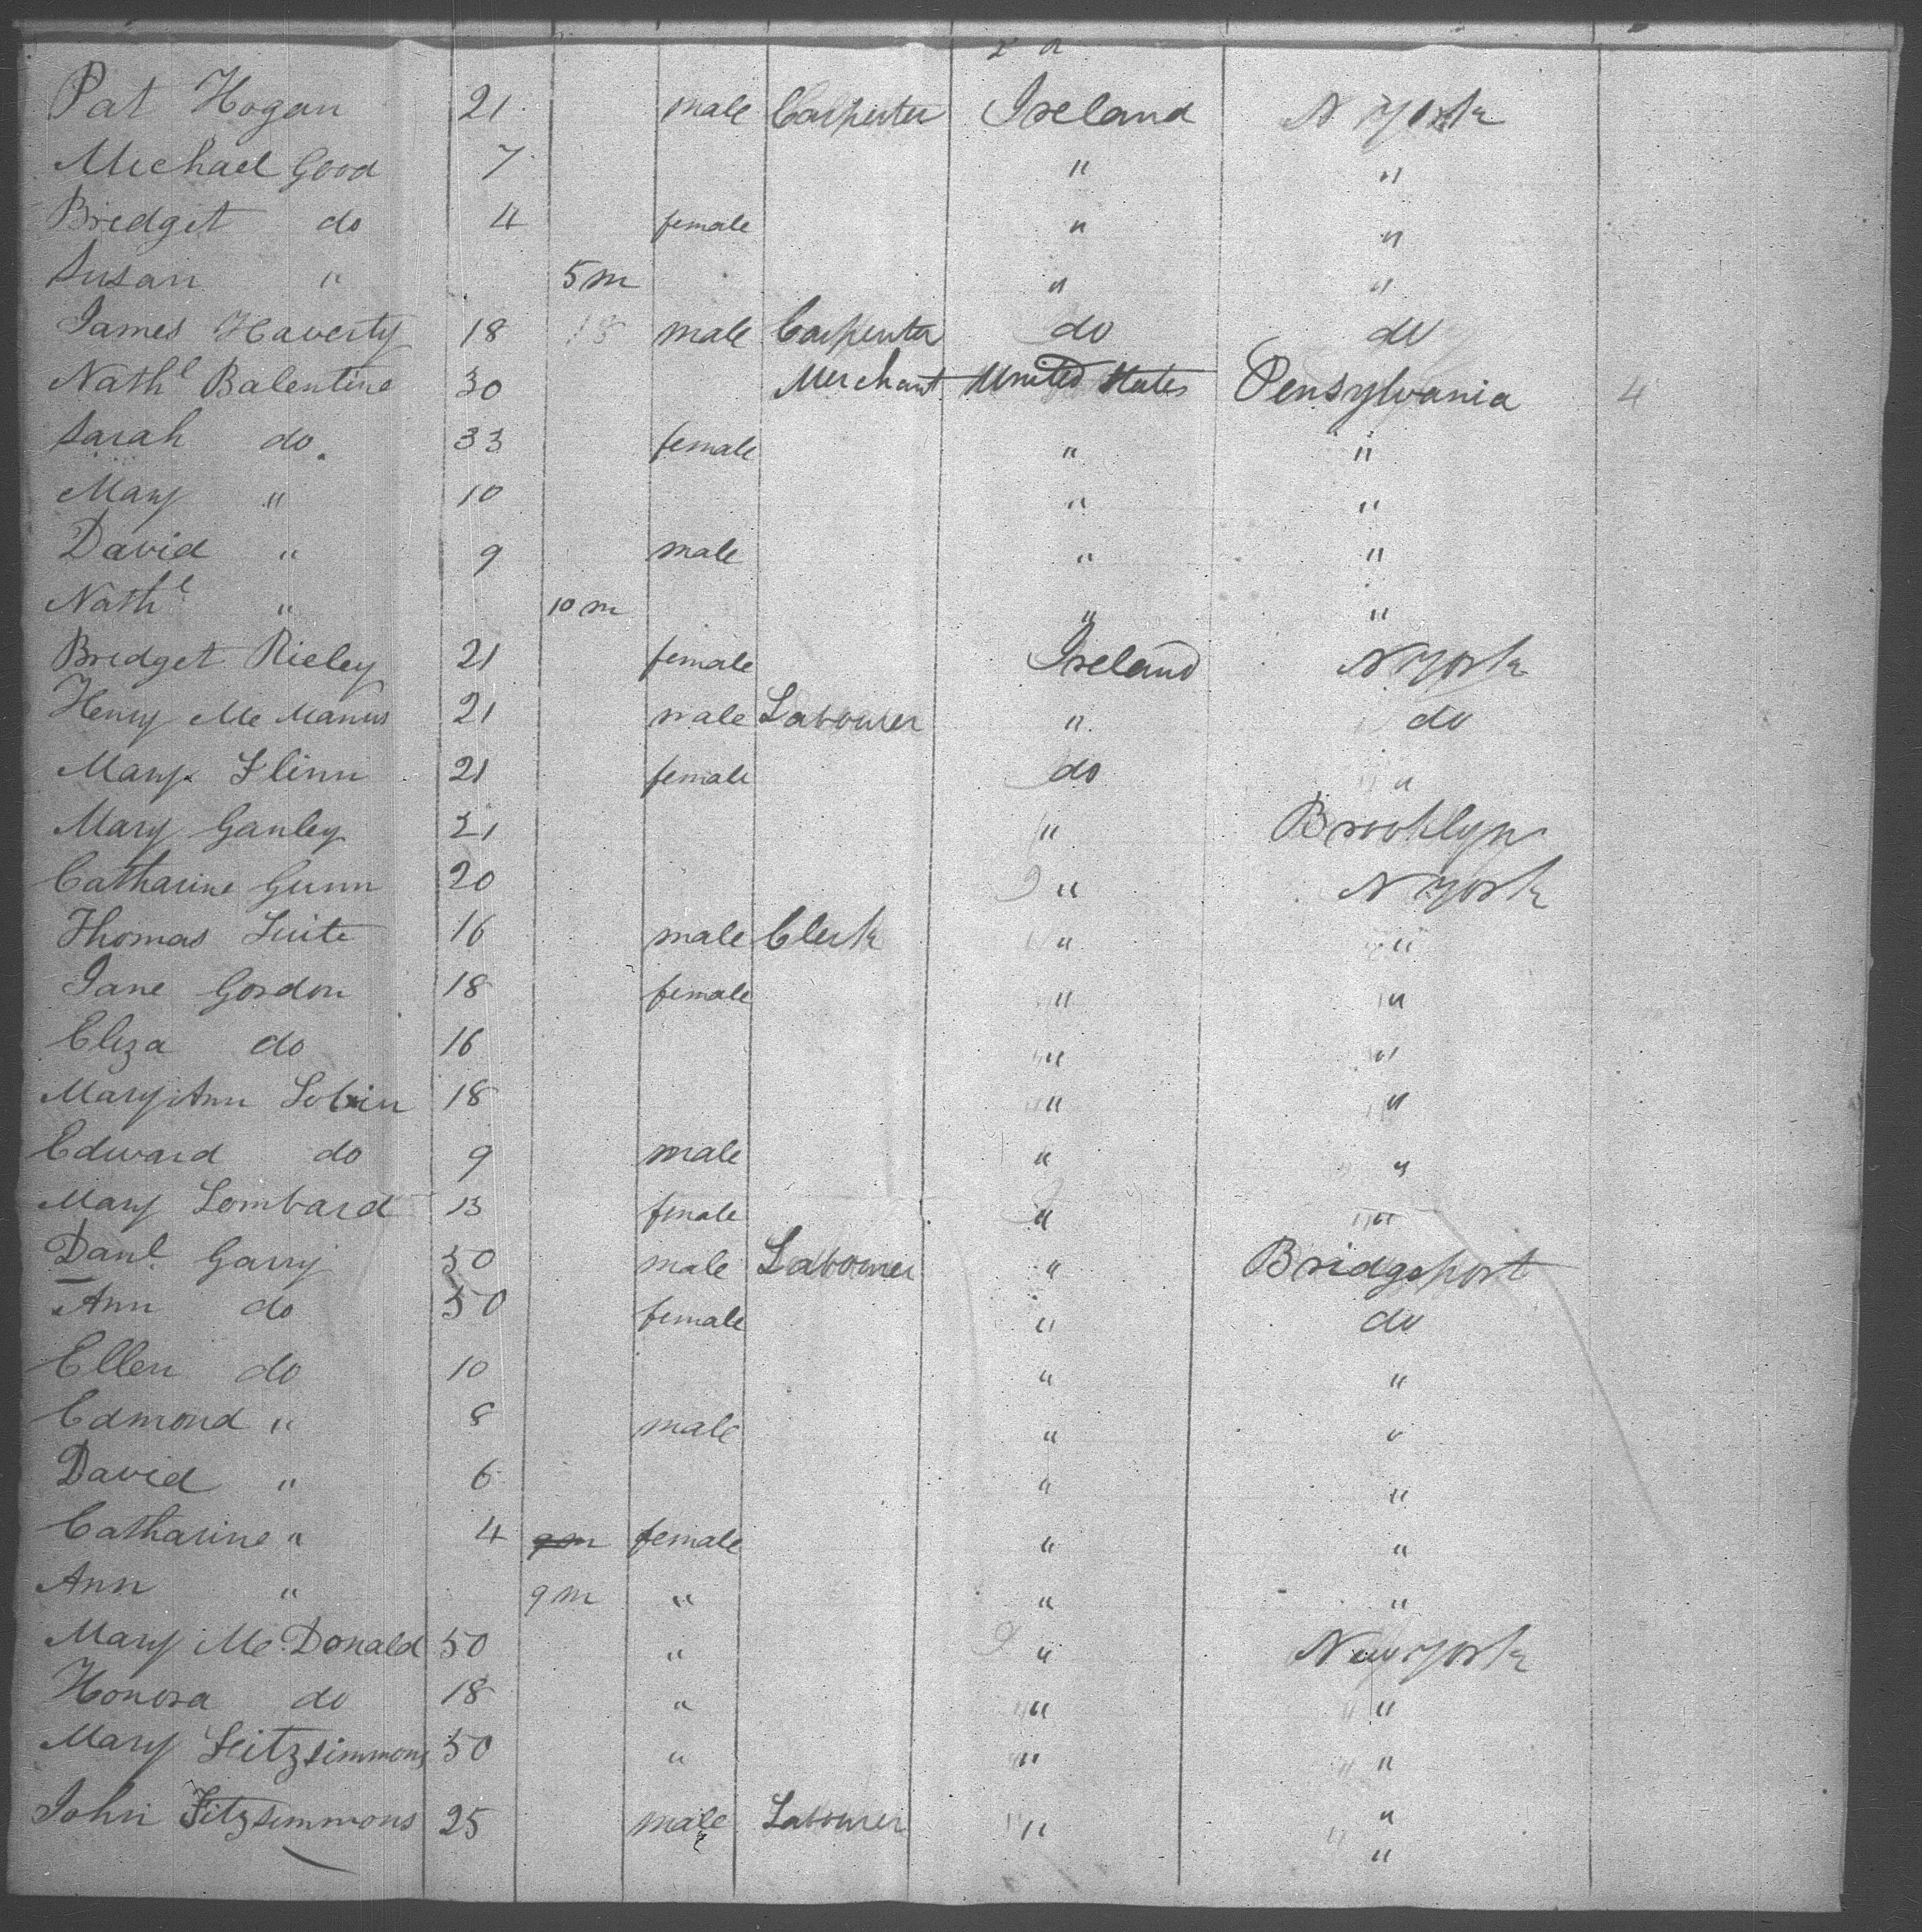 " "
Pat Hogan 21 male Carpenter Ireland N York
Michael Good 7 " "
Bridget do 4 female " "
Susan " 5 m " "
James Haverty 18 18 male Carpenter do do
Nathl Balentine 30 Merchant United States Pensylvania 4
Sarah do. 33 female " "
Mary " 10 " "
David " 9 male " "
Nathl " 10 m " "
Bridget Rieley 21 female Ireland N York
Henry Mc Manus 21 male Labourer " do
Mary Flinn 21 female do "
Mary Ganley 21 " Brooklyn
Catharine Gunn 20 " N York
Thomas 16 male Clerk " "
Jane Gordon 18 female " "
Eliza do 16 " "
Mary Ann 18 " "
Edward do 9 male " "
Mary Lombard 13 female " "
Danl Garry 50 male Labourer " Bridgeport
Ann do 50 female " do
Ellen do 10 " "
Edmond " 8 male " "
David " 6 " "
Catharine " 4 9m female " "
Ann " 9 m " " "
Mary Mc Donald 50 " " New York
Honora do 18 " " "
Mary Fitzsimmons 50 " " "
John Fitzsimmons 25 male Labourer " "
"